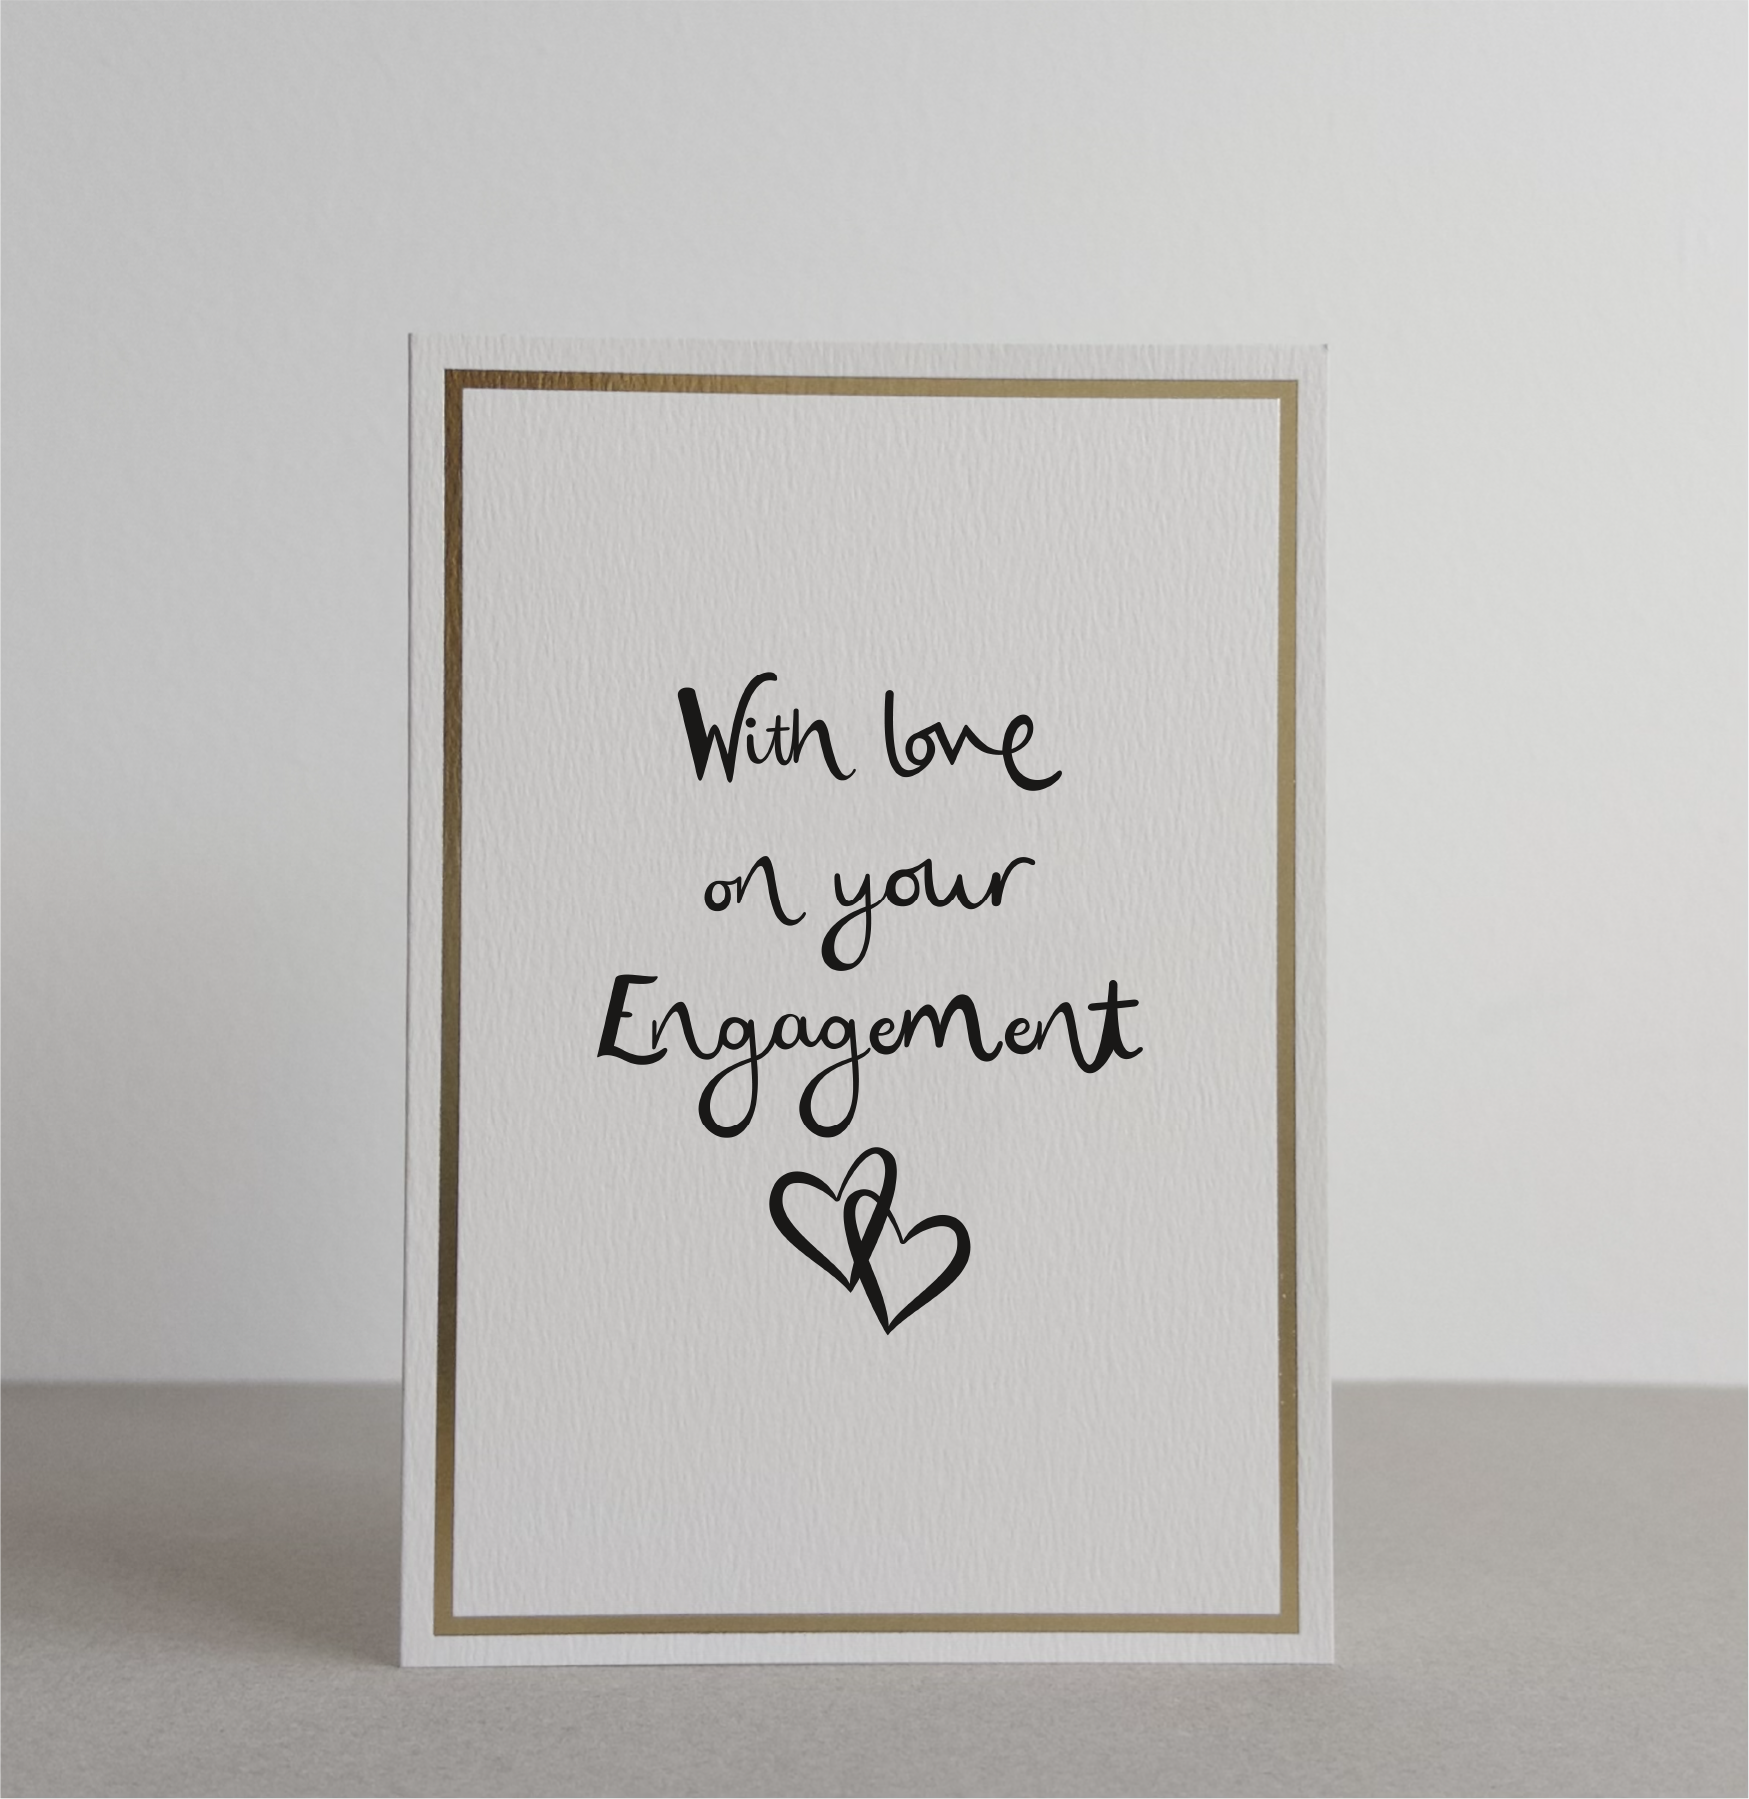 With love
on your
Engagement